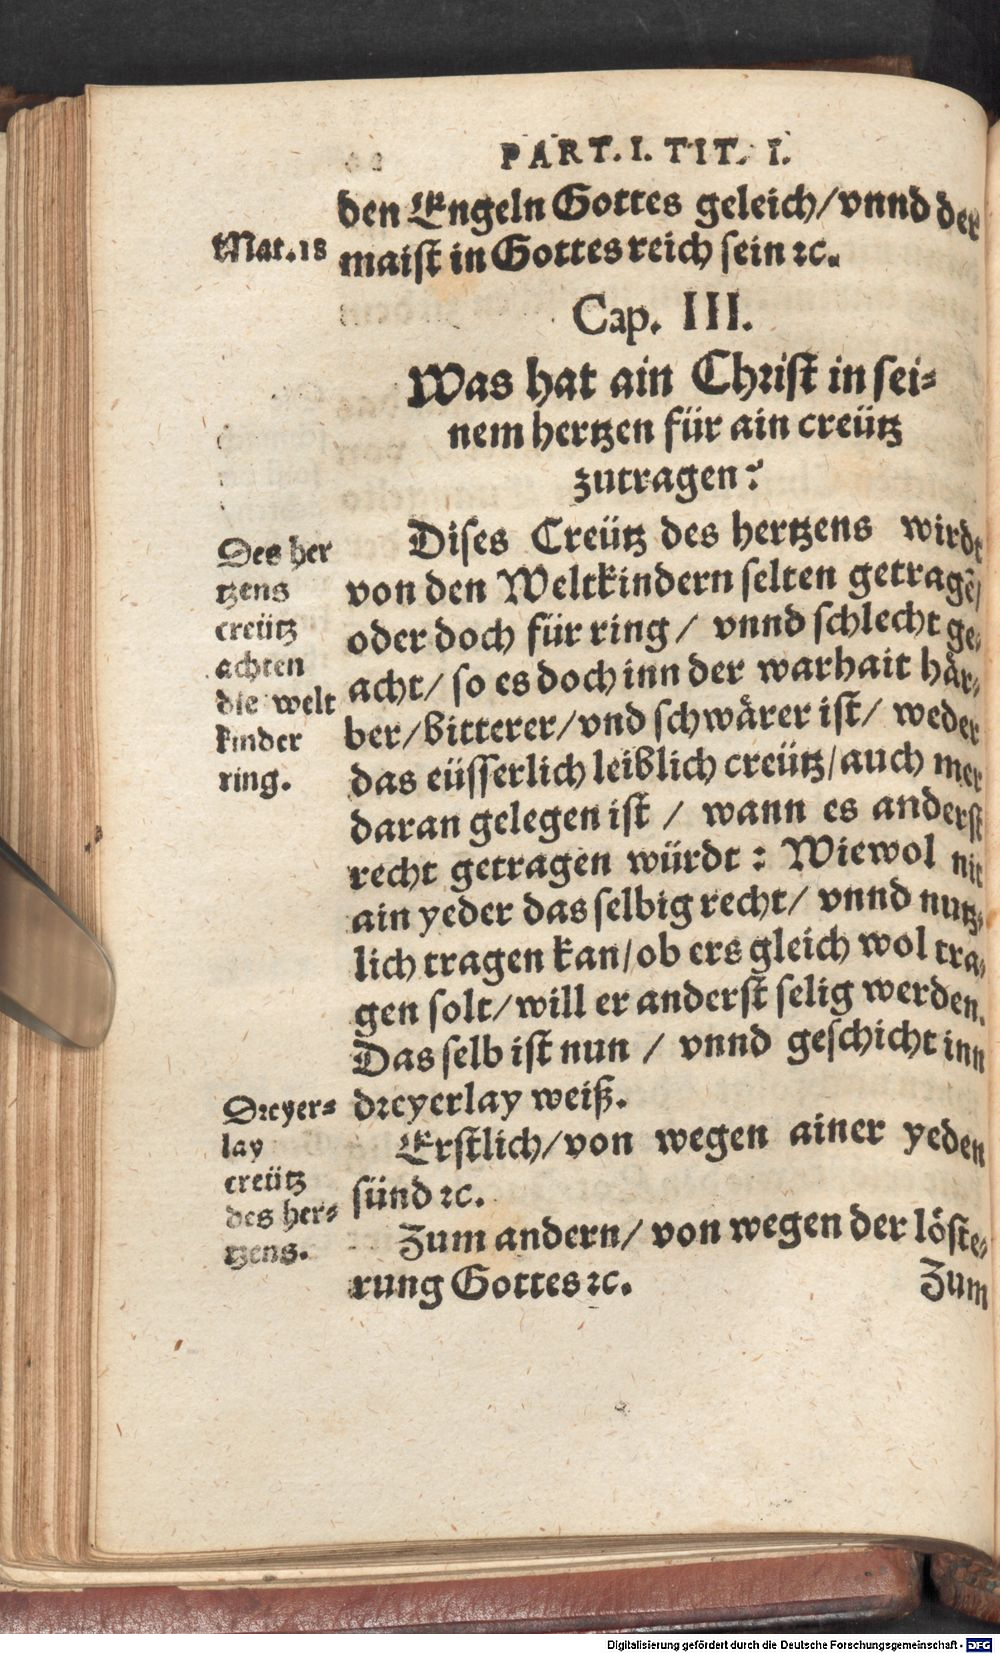 PART. I. TIT. I.
den Engeln Gottes geleich/ vnnd der
Mat. 18
maist in Gottes reich sein ꝛc.
Cap. III.
Was hat ain Christ in sei⸗
nem hertzen für ain creütz
zutragen?
Des her
tzens
creütz
achten
die welt
kinder
ring.
Dises Creütz des hertzens wirdt
von den Weltkindern selten getragẽ/
oder doch für ring / vnnd schlecht ge⸗
acht/ so es doch inn der warhait här⸗
ber/ bitterer/ vnd schwärer ist/ weder
das eüsserlich leiblich creütz/ auch mer
daran gelegen ist / wann es anderst
recht getragen würdt: Wiewol nit
ain yeder das selbig recht/ vnnd nutz⸗
lich tragen kan/ ob ers gleich wol tra⸗
gen solt/ will er anderst selig werden.
Das selb ist nun / vnnd geschicht inn
dreyerlay weiß.
Dreyer⸗
lay
creütz
des her⸗
tzens.
Erstlich/ von wegen ainer yeden
sünd ꝛc.
Zum andern/ von wegen der löste⸗
rung Gottes ꝛc.
Zum
Digitalisierung gefördert durch die Deutsche Forschungsgemeinschaft - DFG